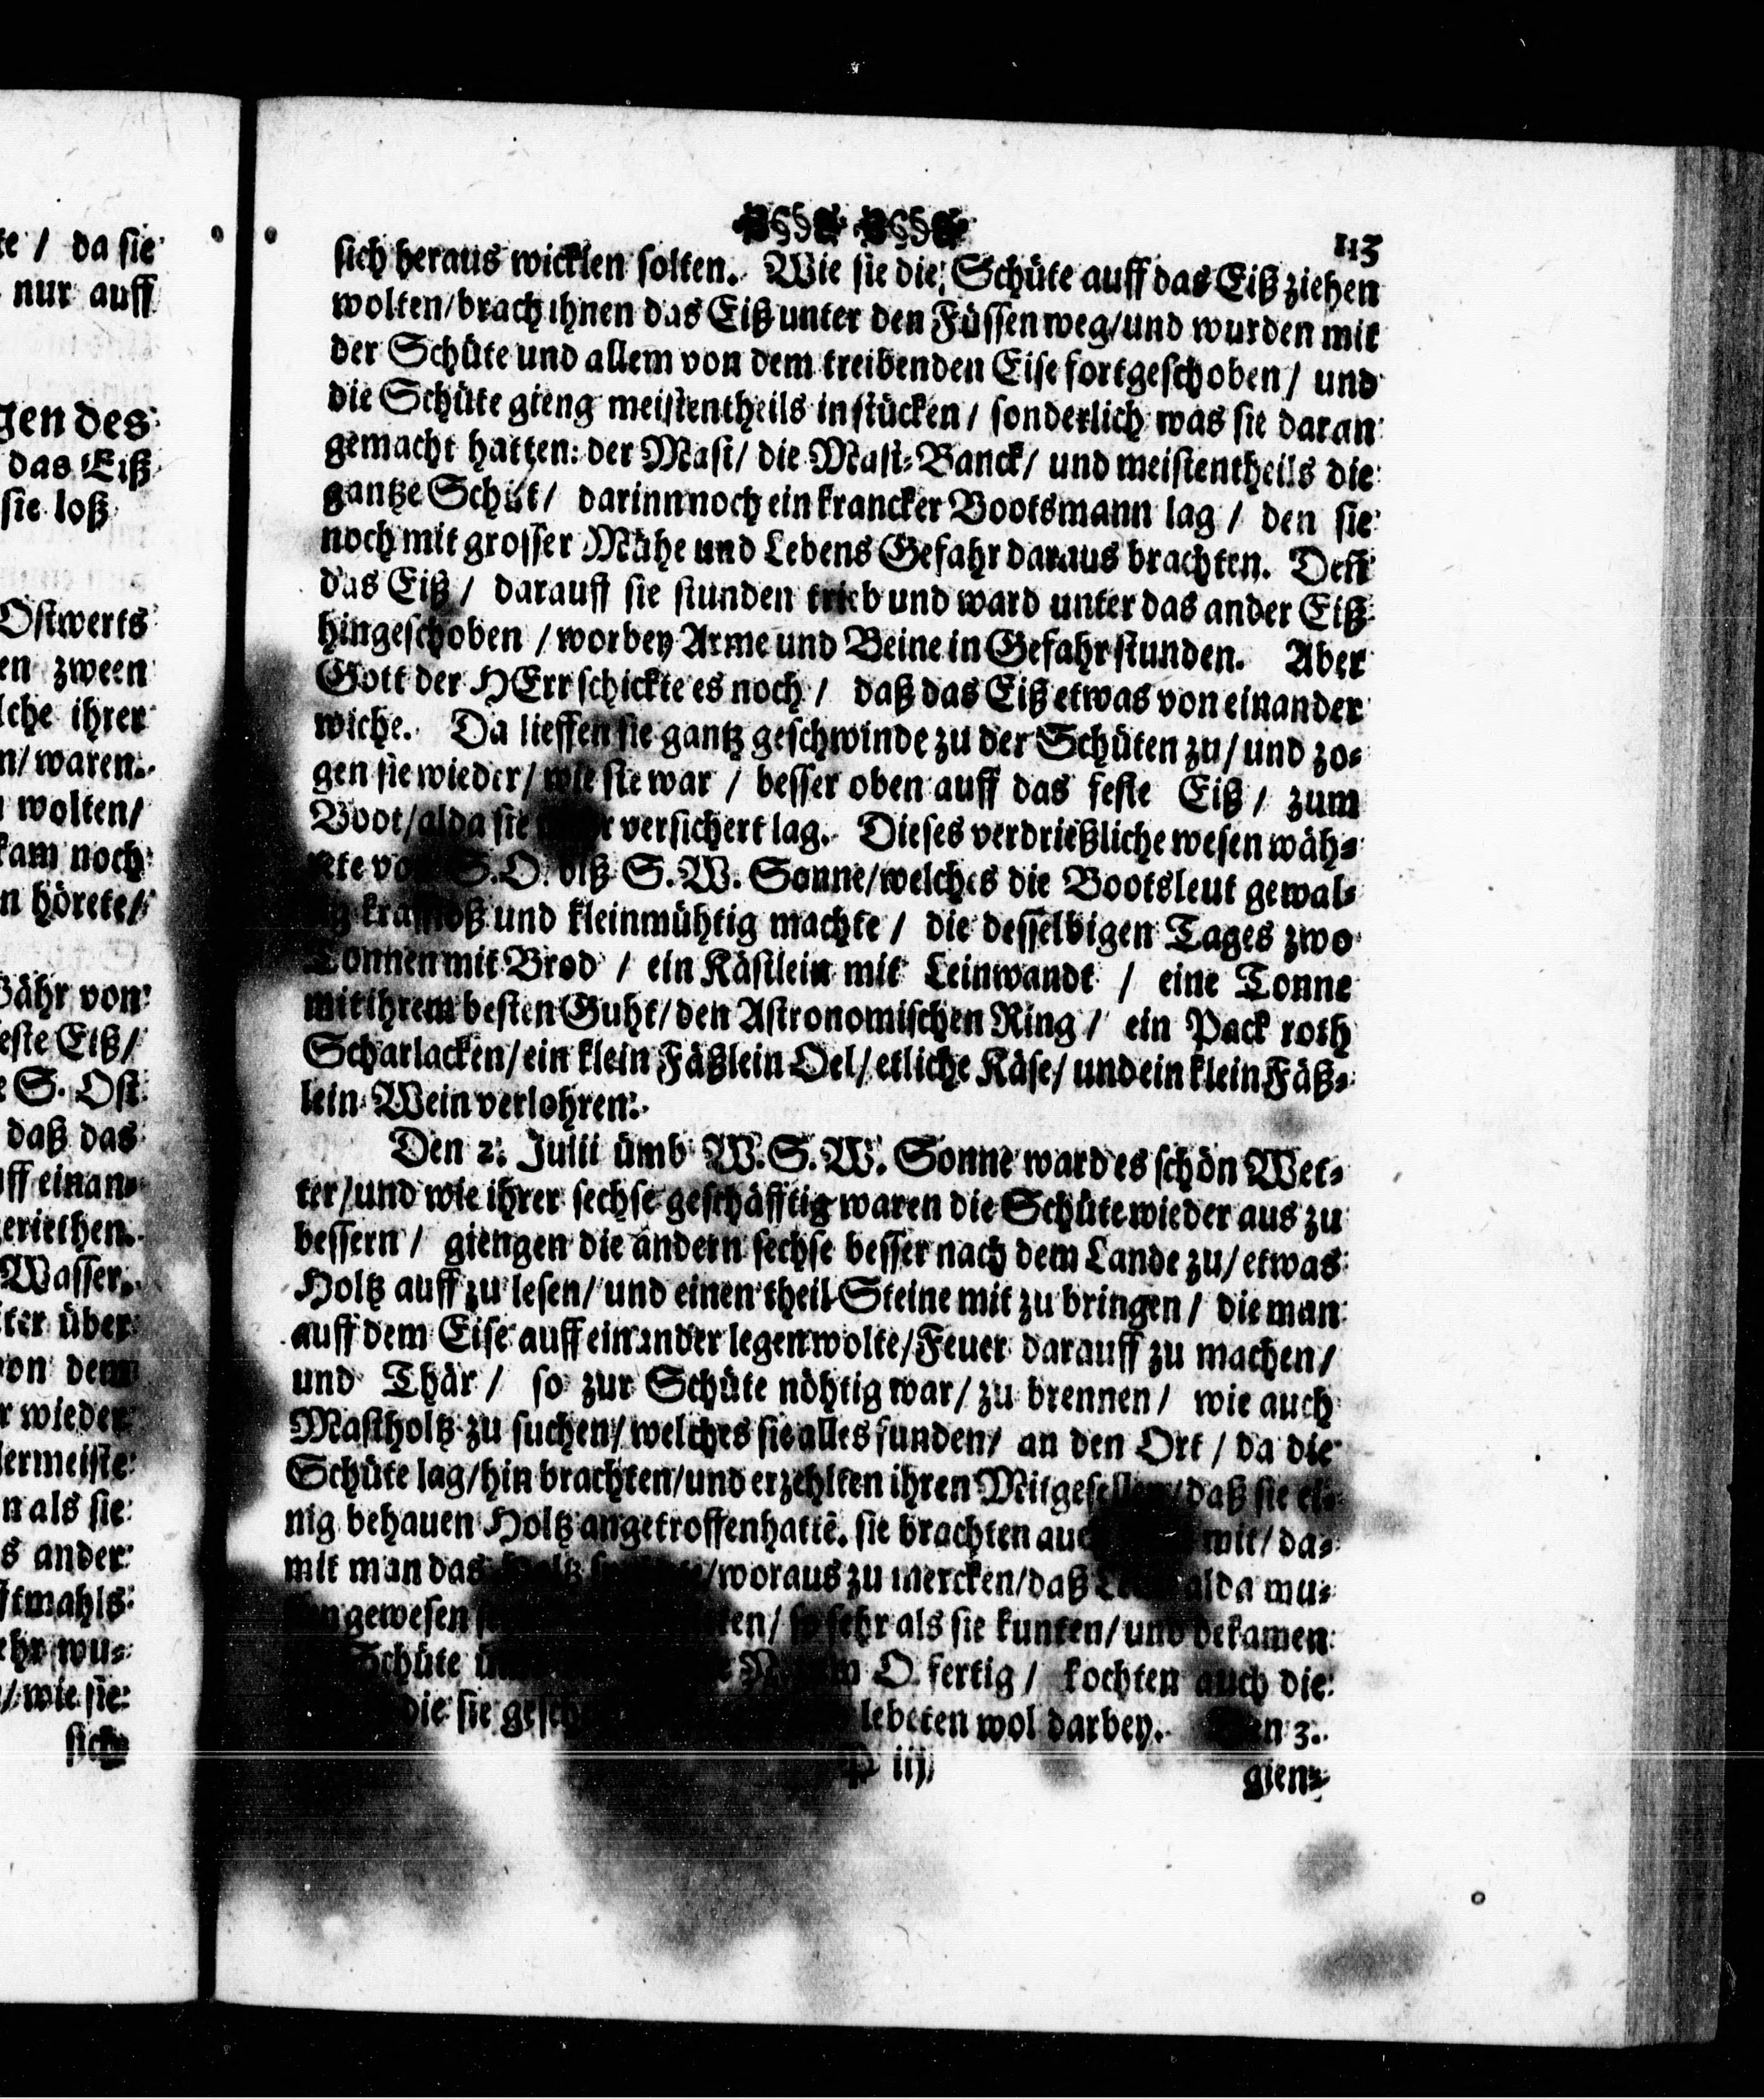 te / da sie
nur auff
gen des
das Eiß
sie loß
Ostwerts
en zween
lche ihrer
n/ waren.
wolten/
kam noch
n hörete/
Bähr von
este Eiß/
S. Ost
daß das
uff einan-
geriethen.
Wasser,
iter über
von dem
r wieder
lermeiste
n als sie
s ander
fftmahls
ehr wu-
/ wie sie
sich
113
sich heraus wicklen solten. Wie sie die Schüte auff das Eiß ziehen
wolten/ brach ihnen das Eiß unter den Füssen weg/ und wurden mit
der Schüte und allem von dem treibenden Eise fortgeschoben/ und
die Schüte gieng meistentheils in stücken/ sonderlich was sie daran
gemacht hatten: der Mast/ die Mast-Banck/ und meistentheils die
gantze Schüt/ darinn noch ein krancker Bootsmann lag/ den sie
noch mit grosser Mühe und Lebens Gefahr daraus brachten. Deñ
das Eiß/ darauff sie stunden trieb und ward unter das ander Eiß
hingeschoben / worbey Arme und Beine in Gefahr stunden. Aber
Gott der HErr schickte es noch/ daß das Eiß etwas von einander
wiche. Da lieffen sie gantz geschwinde zu der Schüten zu/ und zo-
gen sie wieder/ wie sie war / besser oben auff das feste Eiß/ zum
Boot/ alda sie versichert lag. Dieses verdrießliche wesen wäh-
rete von S.O. biß S.W. Sonne/ welches die Bootsleut gewal-
tig krafftloß und kleinmühtig machte/ die desselbigen Tages zwo
Tonnen mit Brod / ein Kästlein mit Leinwandt / eine Tonne
mit ihrem besten Guht/ den Astronomischen Ring/ ein Pack roth
Scharlacken/ ein klein Fäßlein Oel/ etliche Käse/ und ein klein Fäß-
lein Wein verlohren.
Den 2. Julii ümb W.S.W. Sonne ward es schön Wet-
ter/ und wie ihrer sechse geschäfftig waren die Schüte wieder aus zu
bessern/ giengen die andern sechse besser nach dem Lande zu/ etwas
Holtz auff zu lesen/ und einen theil Steine mit zu bringen/ die man
auff dem Eise auff einander legen wolte/ Feuer darauff zu machen/
und Thär/ so zur Schüte nöhtig war/ zu brennen/ wie auch
Mastholtz zu suchen/ welches sie alles funden/ an den Ort / da die
Schüte lag/ hin brachten/ und erzehlten ihren Mitgesellen/ daß sie ei-
nig behauen Holtz angetroffen hattē. sie brachten auch mit/ da-
mit man das Holtz /woraus zu mercken/ daß alda mu-
gewesen / so sehr als sie kunten/ und bekamen
Schüte O. fertig/ kochten auch die
die sie lebeten wol darbey. Den 3.
P iij
gien-